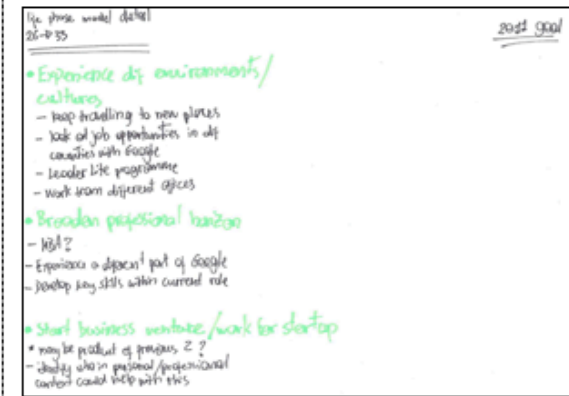 life phase model detail
26-33
2011 goal
• Experience dif environments/
cultures
- keep travelling to new places
- look at job opportunities in dif
countries with Google
- Leader Lite programme
- work from different offices
• Broaden profesional horizon
- MBA?
- Experience a different part of Google
- Develop key skills within current role
• Start business venture/work for startup
* may be product of previous 2?
- identify who in personal/professional
context could help with this